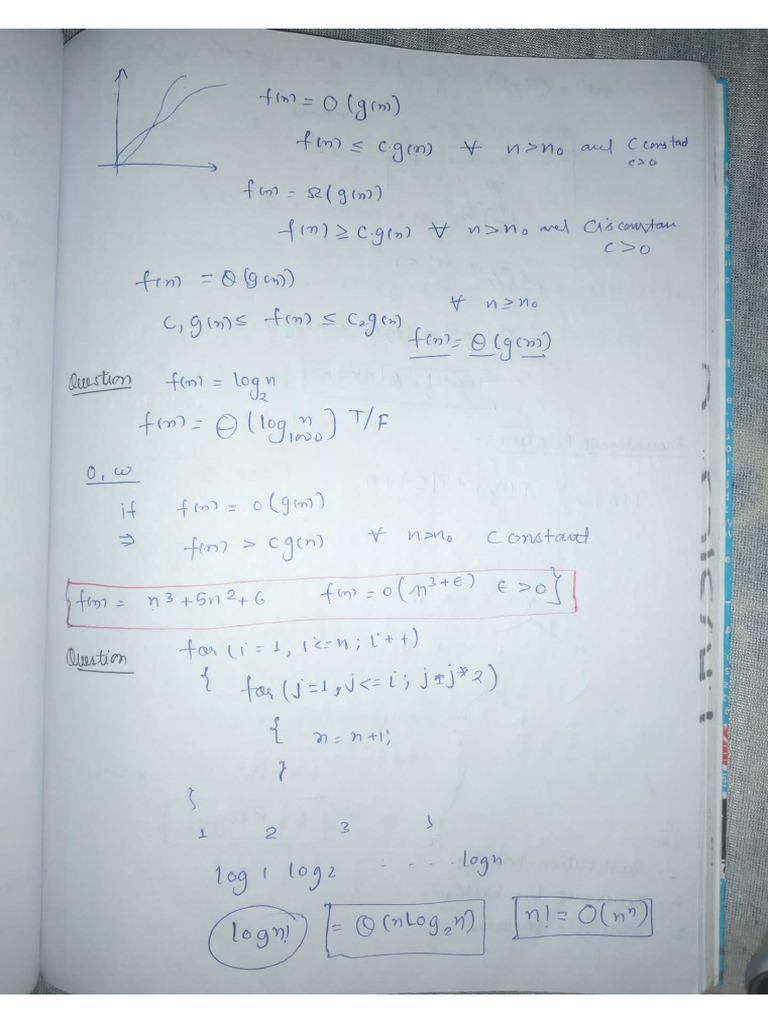 f(n) = O(g(n))
f(n) ≤ c.g(n) ∀ n>n₀ and C constad
c>0
f(n) = Ω(g(n))
f(n) ≥ c.g(n) ∀ n>n₀ and C is constan
c>0
f(n) = Θ(g(n))
∀ n≥n₀
C₁g(n) ≤ f(n) ≤ C₂g(n)
f(n) = Θ(g(n))
Question f(n) = log₂n
f(n) = Θ(log₁₀₀₀n) T/F
o, ω
if f(n) = o(g(n))
⇒ f(n) > cg(n) ∀ n>n₀ c constant
{f(n) = n³+5n²+6 f(n) = o(n^(3+ε)) ε>0}
Question for(i=1, i<=n; i++)
{ for(j=1, j<=i; j=j*2)
{ n=n+1;
}
}
1 2 3
log1 log2 - - - . logn
logn! = Θ(nlog₂n) n! = O(nⁿ)